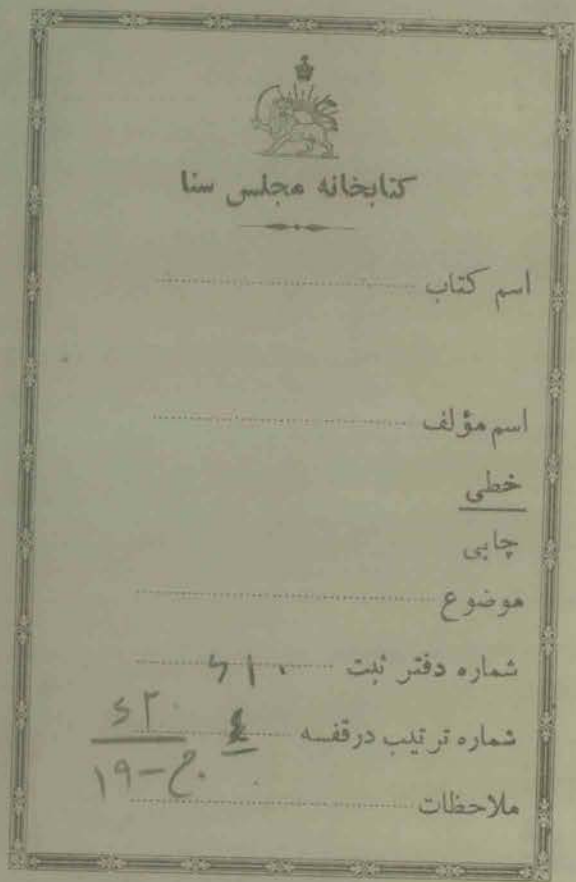 کتابخانه مجلس سنا
اسم کتاب
اسم مؤلف
خطی
چاپی
موضوع
شماره دفتر ثبت
شماره ترتیب در قفسه
ملاحظات